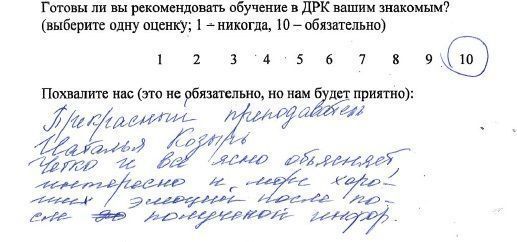 Готовы ли вы рекомендовать обучение в ДРК вашим знакомым?
(выберите одну оценку; 1 – никогда, 10 – обязательно)
1 2 3 4 5 6 7 8 9 10
Похвалите нас (это не обязательно, но нам будет приятно):
Прекрасный преподаватель
Наталья Козырь
четко и все ясно объясняет
интересно и море хоро-
ших эмоций после по-
сле полученой инфор.